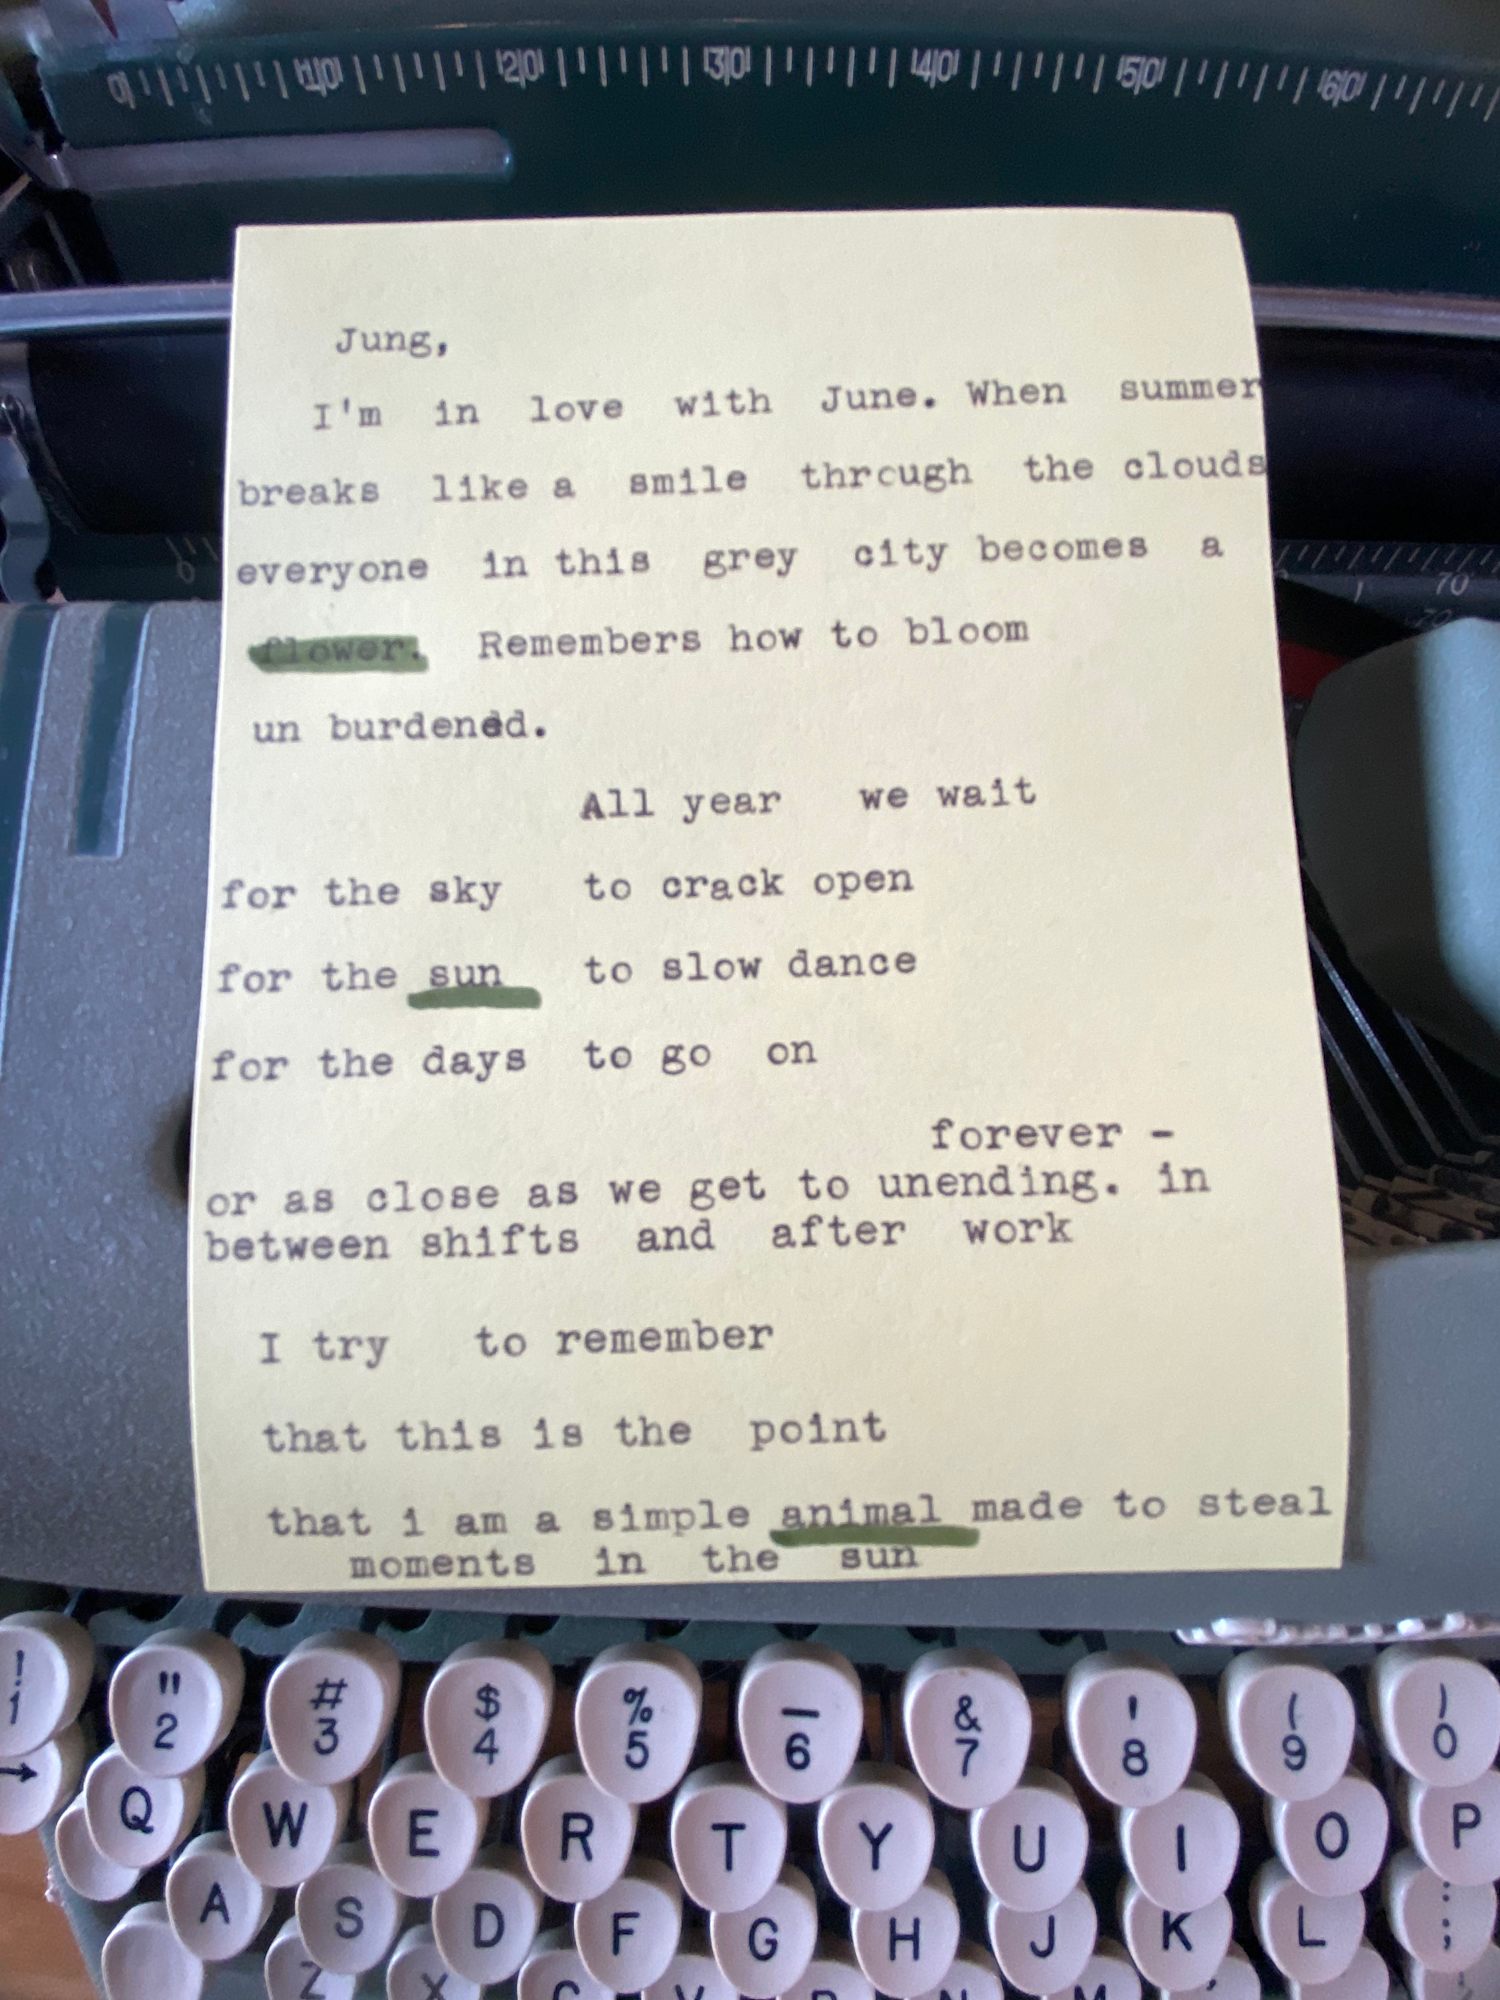 0 10 20 30 40 50 60
Jung,
I'm in love with June. When summer
breaks like a smile through the clouds
everyone in this grey city becomes a
flower. Remembers how to bloom
un burdened.
All year we wait
for the sky to crack open
for the sun to slow dance
for the days to go on
forever -
or as close as we get to unending. in
between shifts and after work
I try to remember
that this is the point
that i am a simple animal made to steal
moments in the sun
0
70
! " # $ % _ & ' ( )
1 2 3 4 5 6 7 8 9 0
→
Q W E R T Y U I O P
A S D F G H J K L : ;
Z X C V B N M